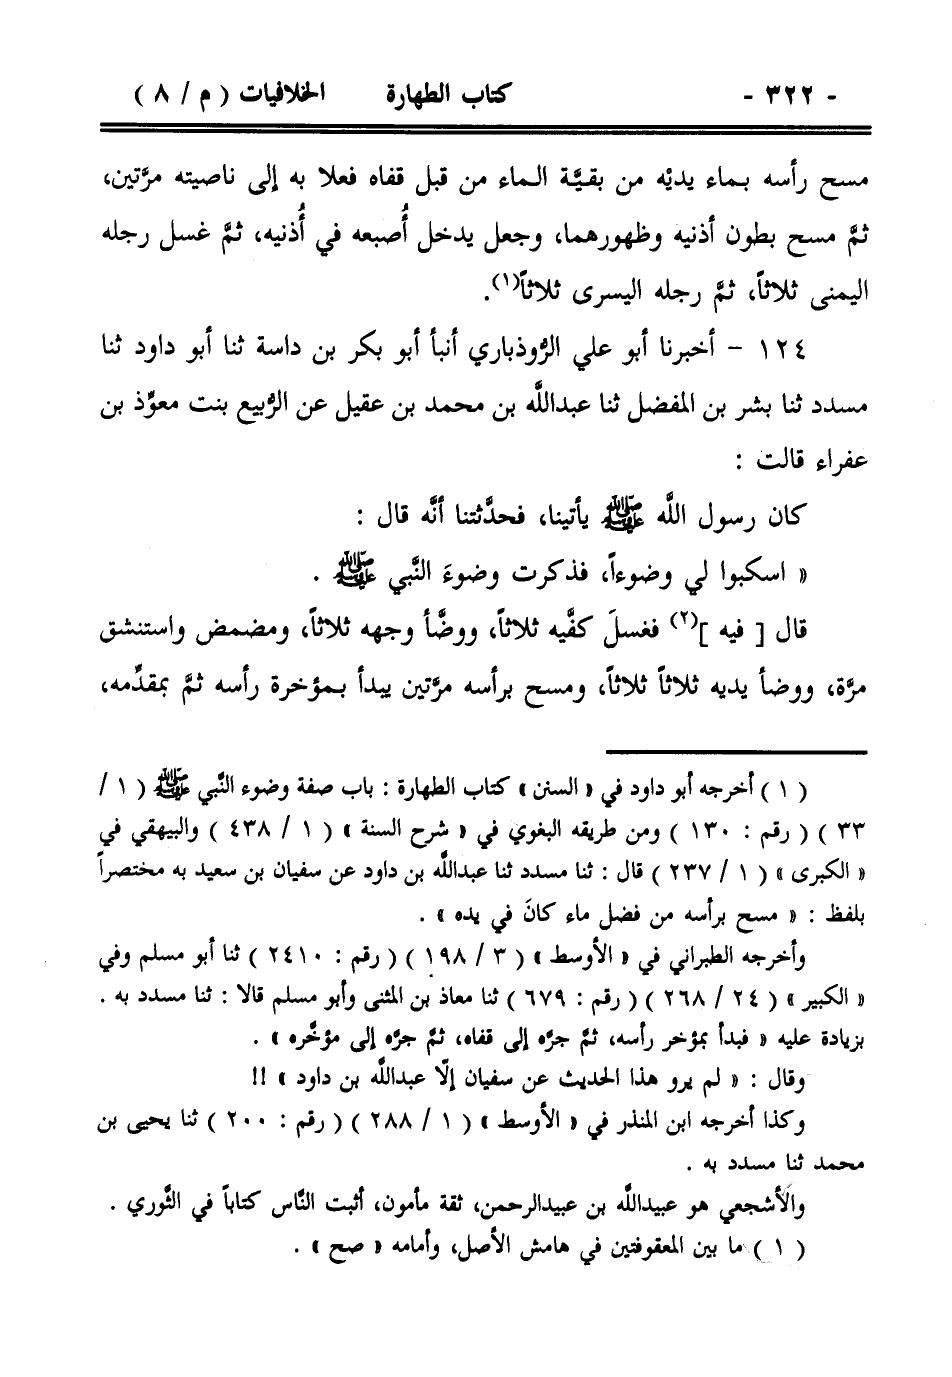 - ٣٢٢ - كتاب الطهارة الخلافيات ( م / ٨ )
مسح رأسه بماء يديْه من بقيَّة الماء من قبل قفاه فعلا به إلى ناصيته مرَّتين،
ثمَّ مسح بطون أذنيه وظهورهما، وجعل يدخل أُصبعه في أُذنيه، ثمَّ غسل رجله
اليمنى ثلاثاً، ثمَّ رجله اليسرى ثلاثاً(١).
١٢٤ - أخبرنا أبو علي الرُّوذباري أنبأ أبو بكر بن داسة ثنا أبو داود ثنا
مسدد ثنا بشر بن المفضل ثنا عبدالله بن محمد بن عقيل عن الرُّبيع بنت معوِّذ بن
عفراء قالت :
كان رسول اللَّه ﷺ يأتينا، فحدَّثتنا أنَّه قال :
« اسكبوا لي وضوءاً، فذكرت وضوءَ النَّبي ﷺ .
قال [ فيه ](٢) فغسلَ كفَّيه ثلاثاً، ووضَّأ وجهه ثلاثاً، ومضمض واستنشق
مرَّة، ووضأ يديه ثلاثاً ثلاثاً، ومسح برأسه مرَّتين يبدأ بمؤخرة رأسه ثمَّ بمقدِّمه،
( ١ ) أخرجه أبو داود في « السنن » كتاب الطهارة : باب صفة وضوء النَّبي ﷺ ( ١ /
٣٣ ) ( رقم : ١٣٠ ) ومن طريقه البغوي في « شرح السنة » ( ١ / ٤٣٨ ) والبيهقي في
« الكبرى » ( ١ / ٢٣٧ ) قال : ثنا مسدد ثنا عبداللَّه بن داود عن سفيان بن سعيد به مختصراً
بلفظ : « مسح برأسه من فضل ماء كانَ في يده » .
وأخرجه الطبراني في « الأوسط » ( ٣ / ١٩٨ ) ( رقم : ٢٤١٠ ) ثنا أبو مسلم وفي
« الكبير » ( ٢٤ / ٢٦٨ ) ( رقم : ٦٧٩ ) ثنا معاذ بن المثنى وأبو مسلم قالا : ثنا مسدد به .
بزيادة عليه « فبدأ بمؤخر رأسه، ثمَّ جرَّه إلى قفاه، ثمَّ جرَّه إلى مؤخَّره » .
وقال : « لم يرو هذا الحديث عن سفيان إلّا عبداللَّه بن داود » !!
وكذا أخرجه ابن المنذر في « الأوسط » ( ١ / ٢٨٨ ) ( رقم : ٢٠٠ ) ثنا يحيى بن
محمد ثنا مسدد به .
والأشجعي هو عبيداللَّه بن عبيدالرحمن، ثقة مأمون، أثبت النَّاس كتاباً في الثَّوري .
( ١ ) ما بين المعقوفتين في هامش الأصل، وأمامه « صح » .